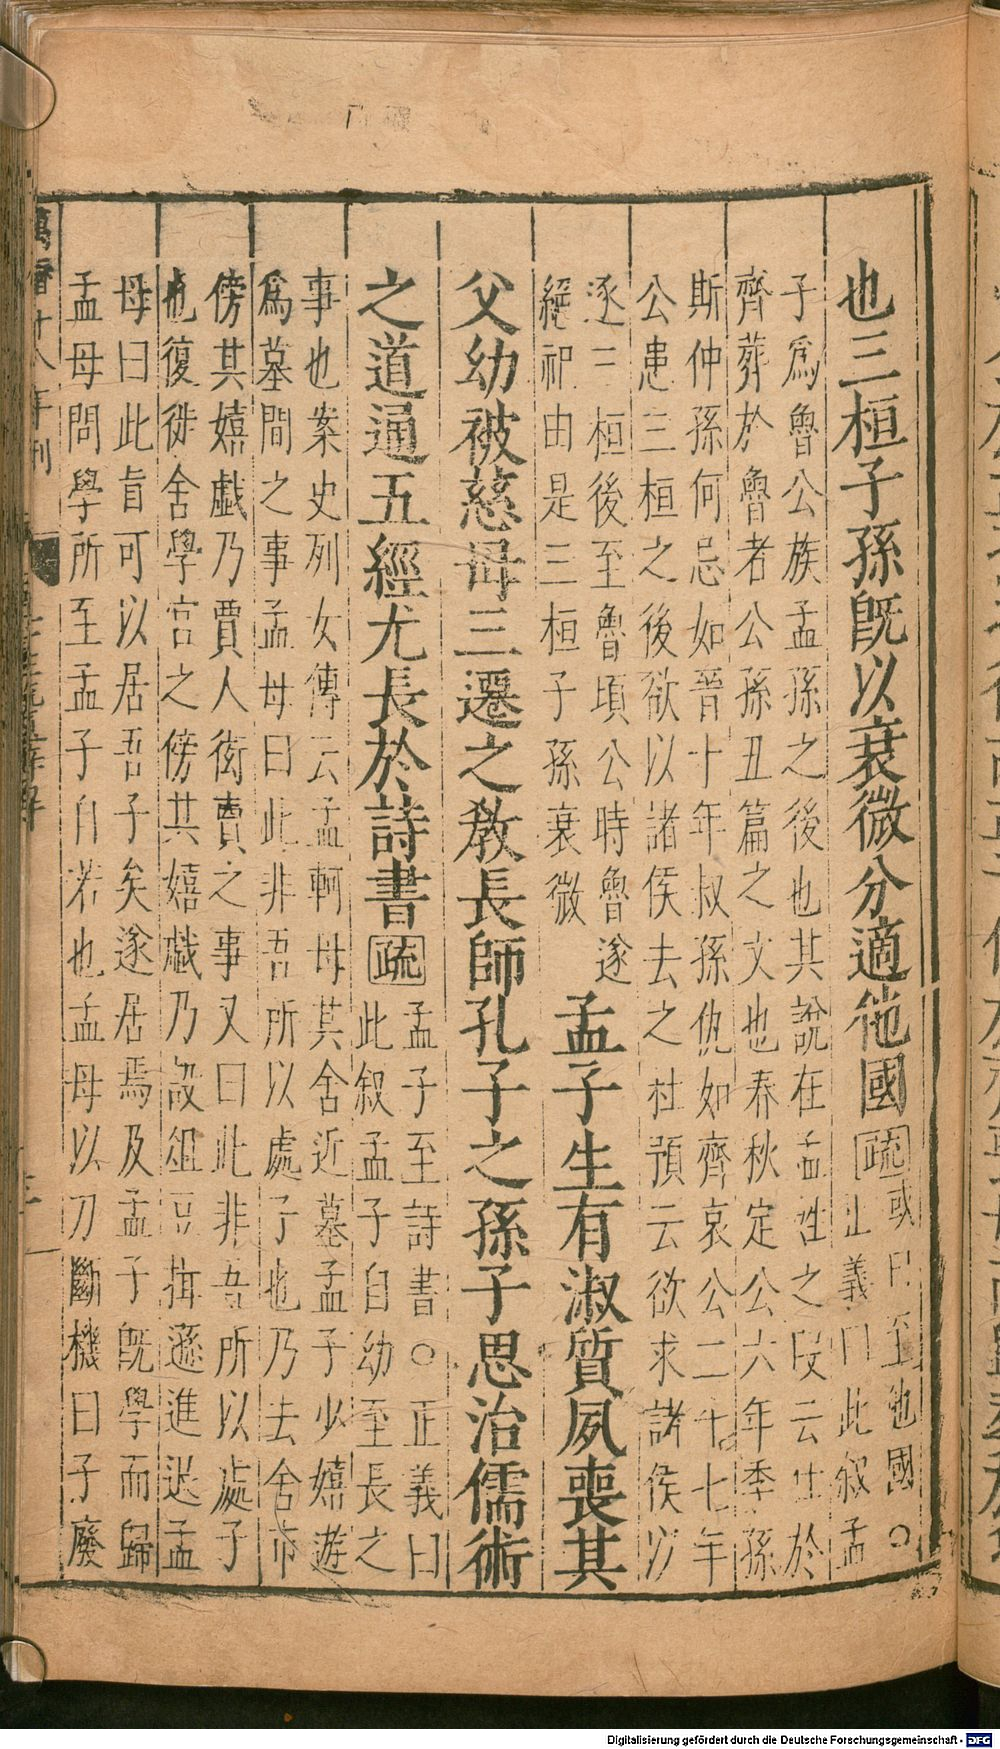 也三桓子孫既以衰微分適他國疏或曰至他國○
正義曰此叙孟
子爲魯公族孟孫之後也其說在孟姓之段云仕於
齊葬於魯者公孫丑篇之文也春秋定公六年季孫
斯仲孫何忌如晉十年叔孫仇如齊哀公二十七年
公患三桓之後欲以諸侯去之杜預云欲求諸侯以
逐三桓後至魯頃公時魯遂
絕祀由是三桓子孫衰微
孟子生有淑質夙喪其
父幼被慈母三遷之敎長師孔子之孫子思治儒術
之道通五經尤長於詩書疏孟子至詩書○正義曰
此叙孟子自幼至長之
事也案史列女傳云孟軻母其舍近墓孟子少嬉遊
爲墓間之事孟母曰此非吾所以處子也乃去舍市
傍其嬉戲乃賈人衒賣之事又曰此非吾所以處子
也復徙舍學宮之傍其嬉戲乃設俎豆揖遜進退孟
母曰此眞可以居吾子矣遂居焉及孟子既學而歸
孟母問學所至孟子自若也孟母以刀斷機曰子廢
萬曆十八年刊
Digitalisierung gefördert durch die Deutsche Forschungsgemeinschaft - DFG